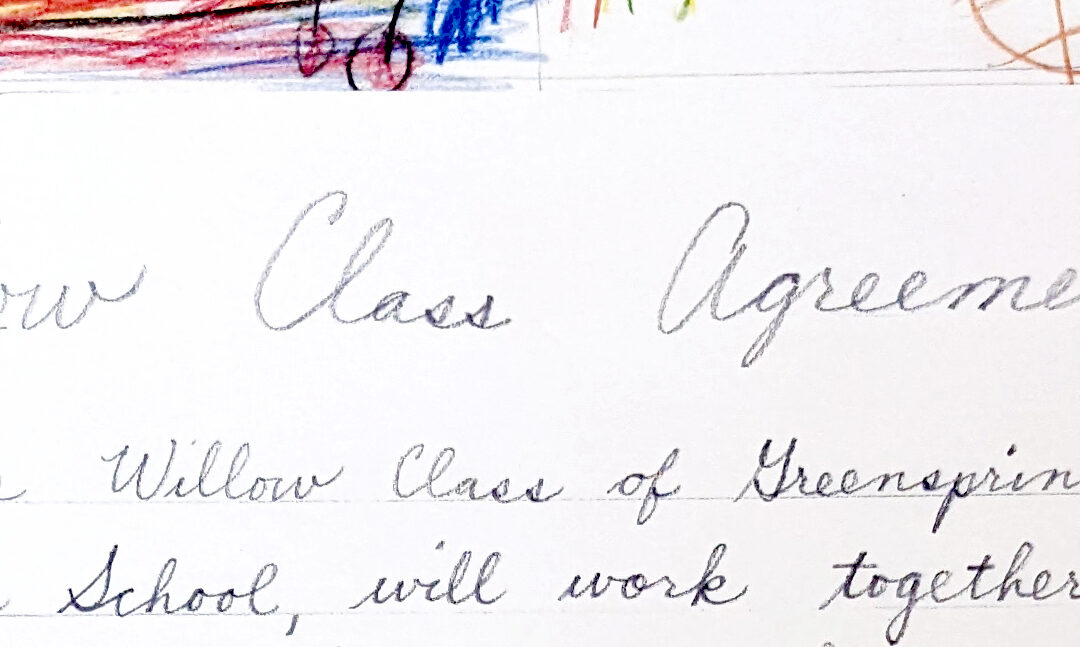 Class Agreeme
Willow Class of Greensprin
School, will work together